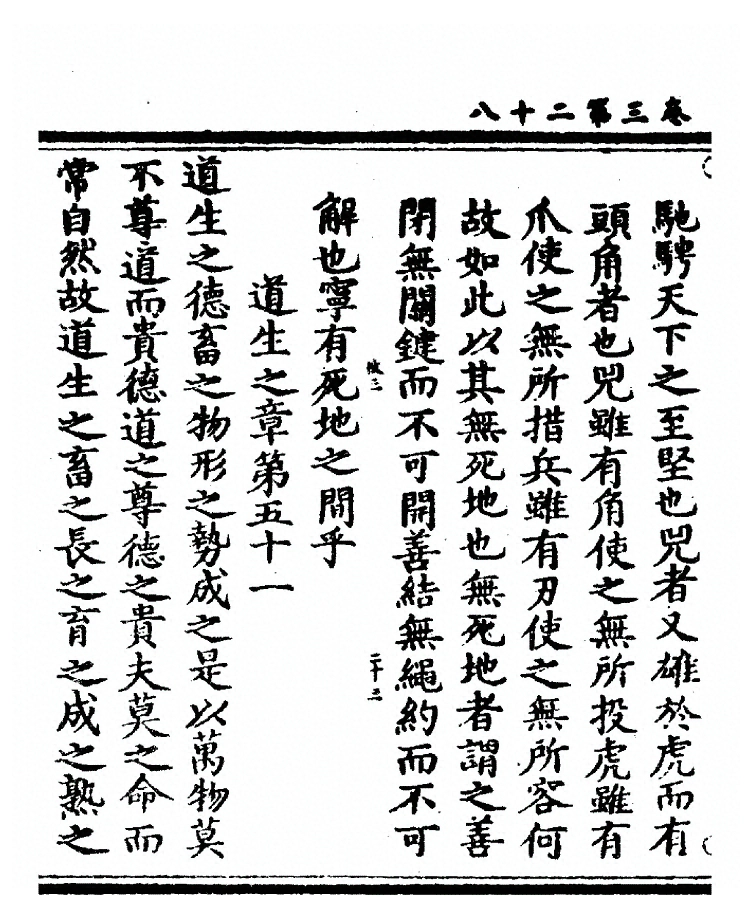 卷三第二十八
馳騁天下之至堅也兕者又雄於虎而有
頭角者也兕雖有角使之無所投虎雖有
爪使之無所措兵雖有刃使之無所容何
故如此以其無死地也無死地者謂之善
閉無關鍵而不可開善結無繩約而不可
二十三
解也寧有死地之間乎
道生之章第五十一
道生之德畜之物形之勢成之是以萬物莫
不尊道而貴德道之尊德之貴夫莫之命而
常自然故道生之畜之長之育之成之熟之